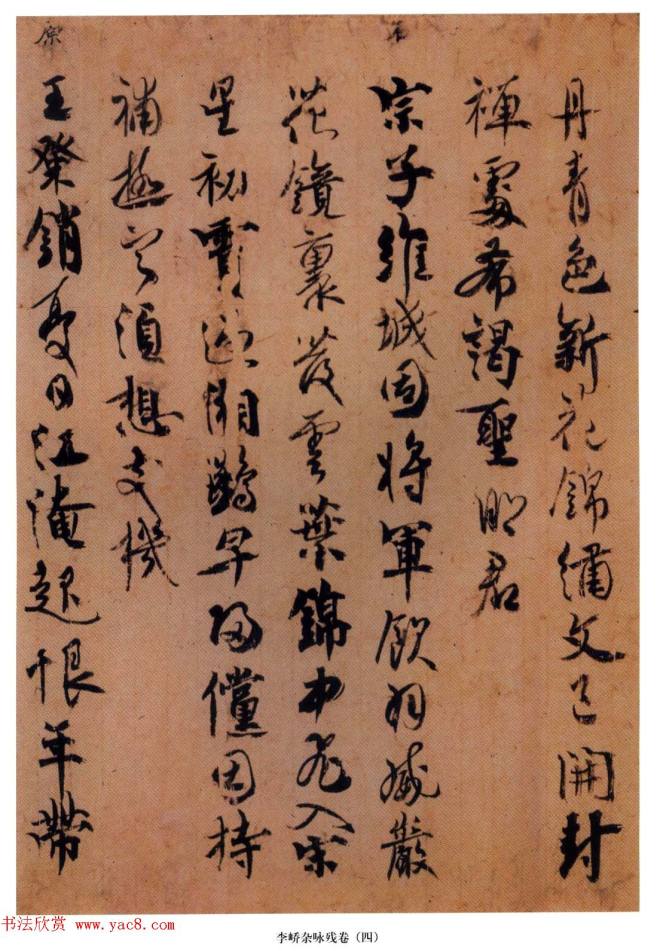 丹青色新花錦繡文已開封
禪處希謁聖明君
石
宗子維城固將軍飲羽威巖
花鏡裏發雲葉錦中飛入宋
星初霣過湘鷰早歸儻因持
補極寧須想支機
原
王粲銷憂日江淹起恨年帶
书法欣赏 www.yac8.com
李峤杂咏残卷（四）